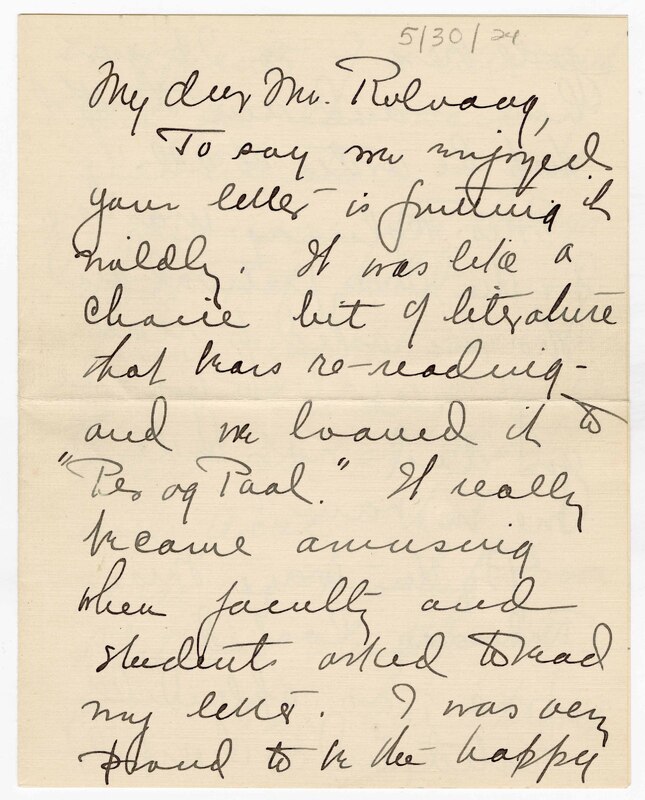 5/30/24
My dear Mr. Rolvaag,
To say we enjoyed
your letter is putting it
mildly. It was like a
choice bit of literature
that bears re-reading-
and we loaned it to
"Per og Paal." It really
became amusing
when faculty and
students asked to read
my letter. I was very
proud to be the happy